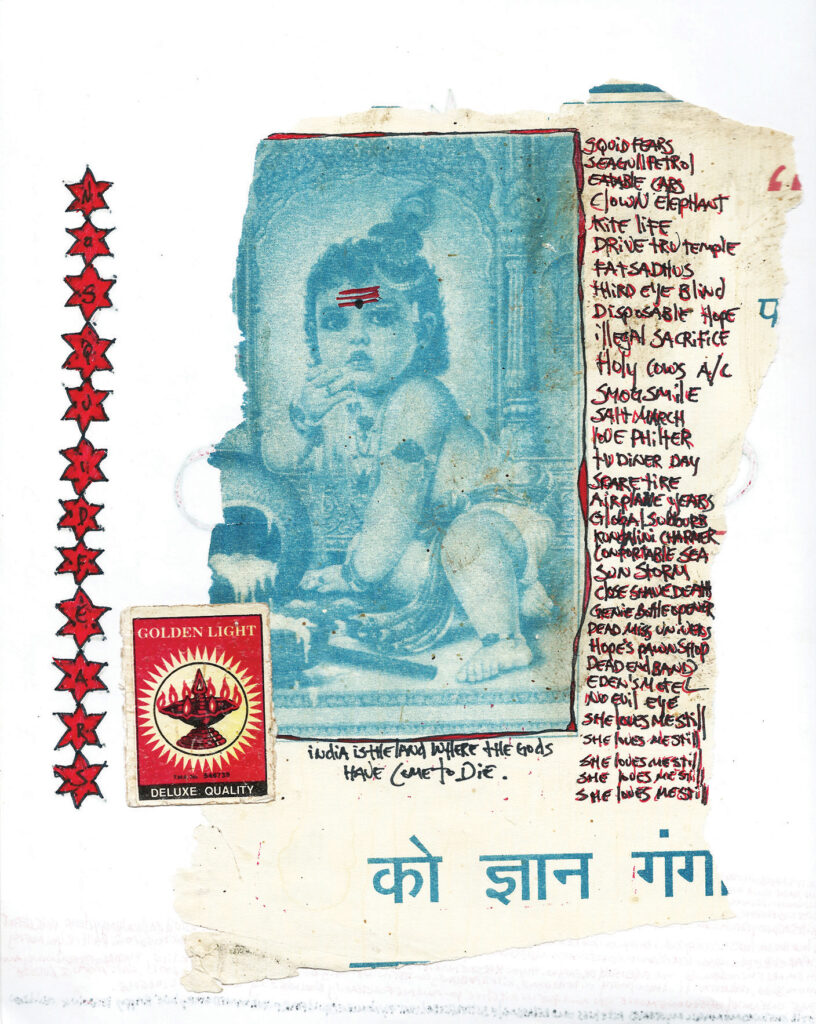 NaSQUIDFeARS
SQUID FEARS
SEAGULL PETROL
EATABLE CARS
CLOWN ELEPHANT
KITE LIFE
DRIVE TRU TEMPLE
FAT SADHUS
THIRD EYE BLIND
DISPOSABLE HOPE
ILLEGAL SACRIFICE
HOLY COWS A/C
SMOG SMILE
SALT MARCH
LOVE PHILTER
TV DINER DAY
SPARE TIRE
AIRPLANE YEARS
GLOBAL SUBURB
KUNDALINI CHARMER
CONFORTABLE SEA
SUN STORM
CLOSE SHAVE DEATH
GENIE BOTTLE OPENER
DEAD MISS UNIVERS
HOPE'S PAWN SHOP
DEAD END BAND
EDEN'S MOTEL
NO EVIL EYE
SHE LOVES ME STILL
SHE LOVES ME STILL
SHE LOVES ME STILL
SHE LOVES ME STILL
SHE LOVES ME STILL
“
प
GOLDEN LIGHT
DELUXE QUALITY
INDIA IS THE LAND WHERE THE GODS
HAVE COME TO DIE.
को ज्ञान गंग